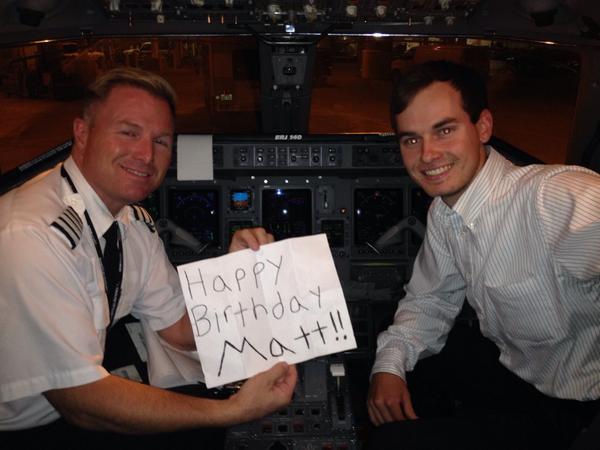 ERJ 140
Happy
Birthday
Matt!!